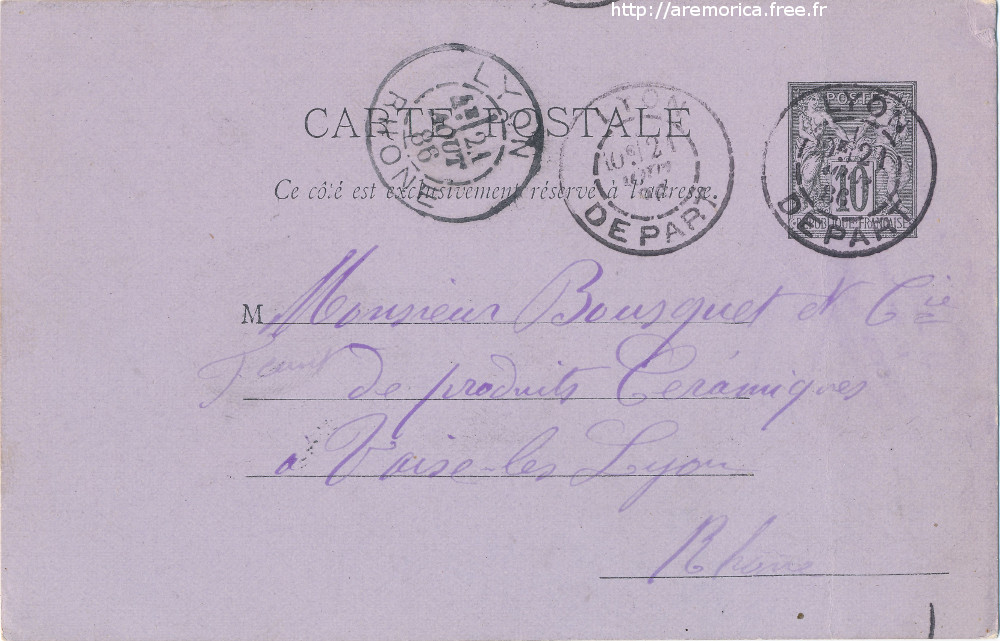 http://aremorica.free.fr
CARTE POSTALE
Ce côté est exclusivement réservé à l'adresse.
LYON
4E 21
AOUT
86
RHONE
LYON
10E 21
AOUT
86
DEPART
LYON
21
86
DEPART
POSTES
10
REPUBLIQUE FRANÇAISE
M Monsieur Bousquet & Cie
de produits Céramiques
à Vaise-les Lyon
Rhône